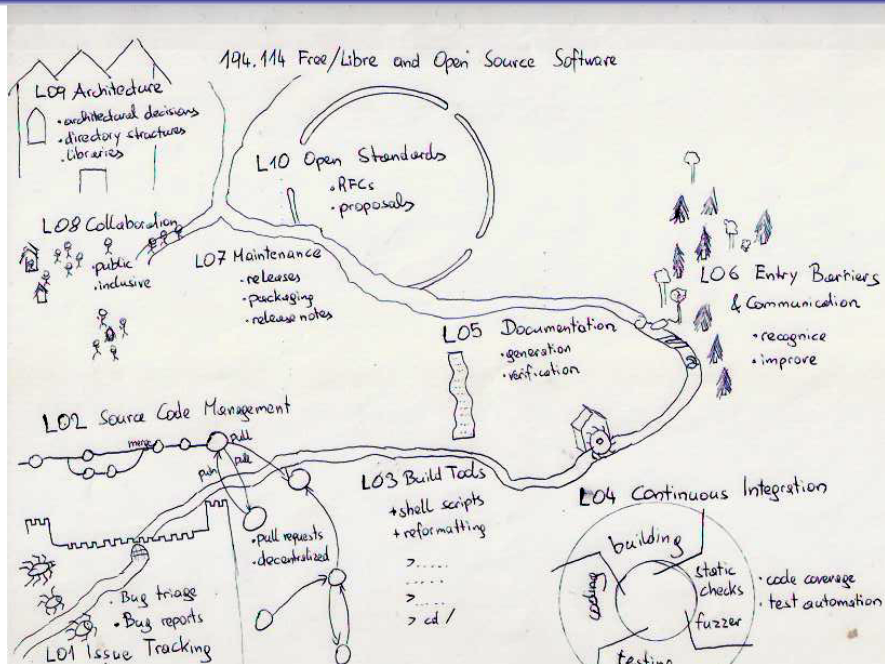 194.114 Free/Libre and Open Source Software
L09 Architecture
• architectural decisions
• directory structures
• libraries
L10 Open Standards
• RFCs
• proposals
L08 Collaboration
• public
• inclusive
L07 Maintenance
• releases
• packaging
• release notes
L06 Entry Barriers
& Communication
• recognice
• improve
L05 Documentation
• generation
• verification
L02 Source Code Management
merge
pull
pull
push
• pull requests
• decentralized
L03 Build Tools
+ shell scripts
+ reformatting
>.....
.....
>....
> cd /
L04 Continuous Integration
building
static
checks
fuzzer
testing
coding
• code coverage
• test automation
• Bug triage
• Bug reports
L01 Issue Tracking